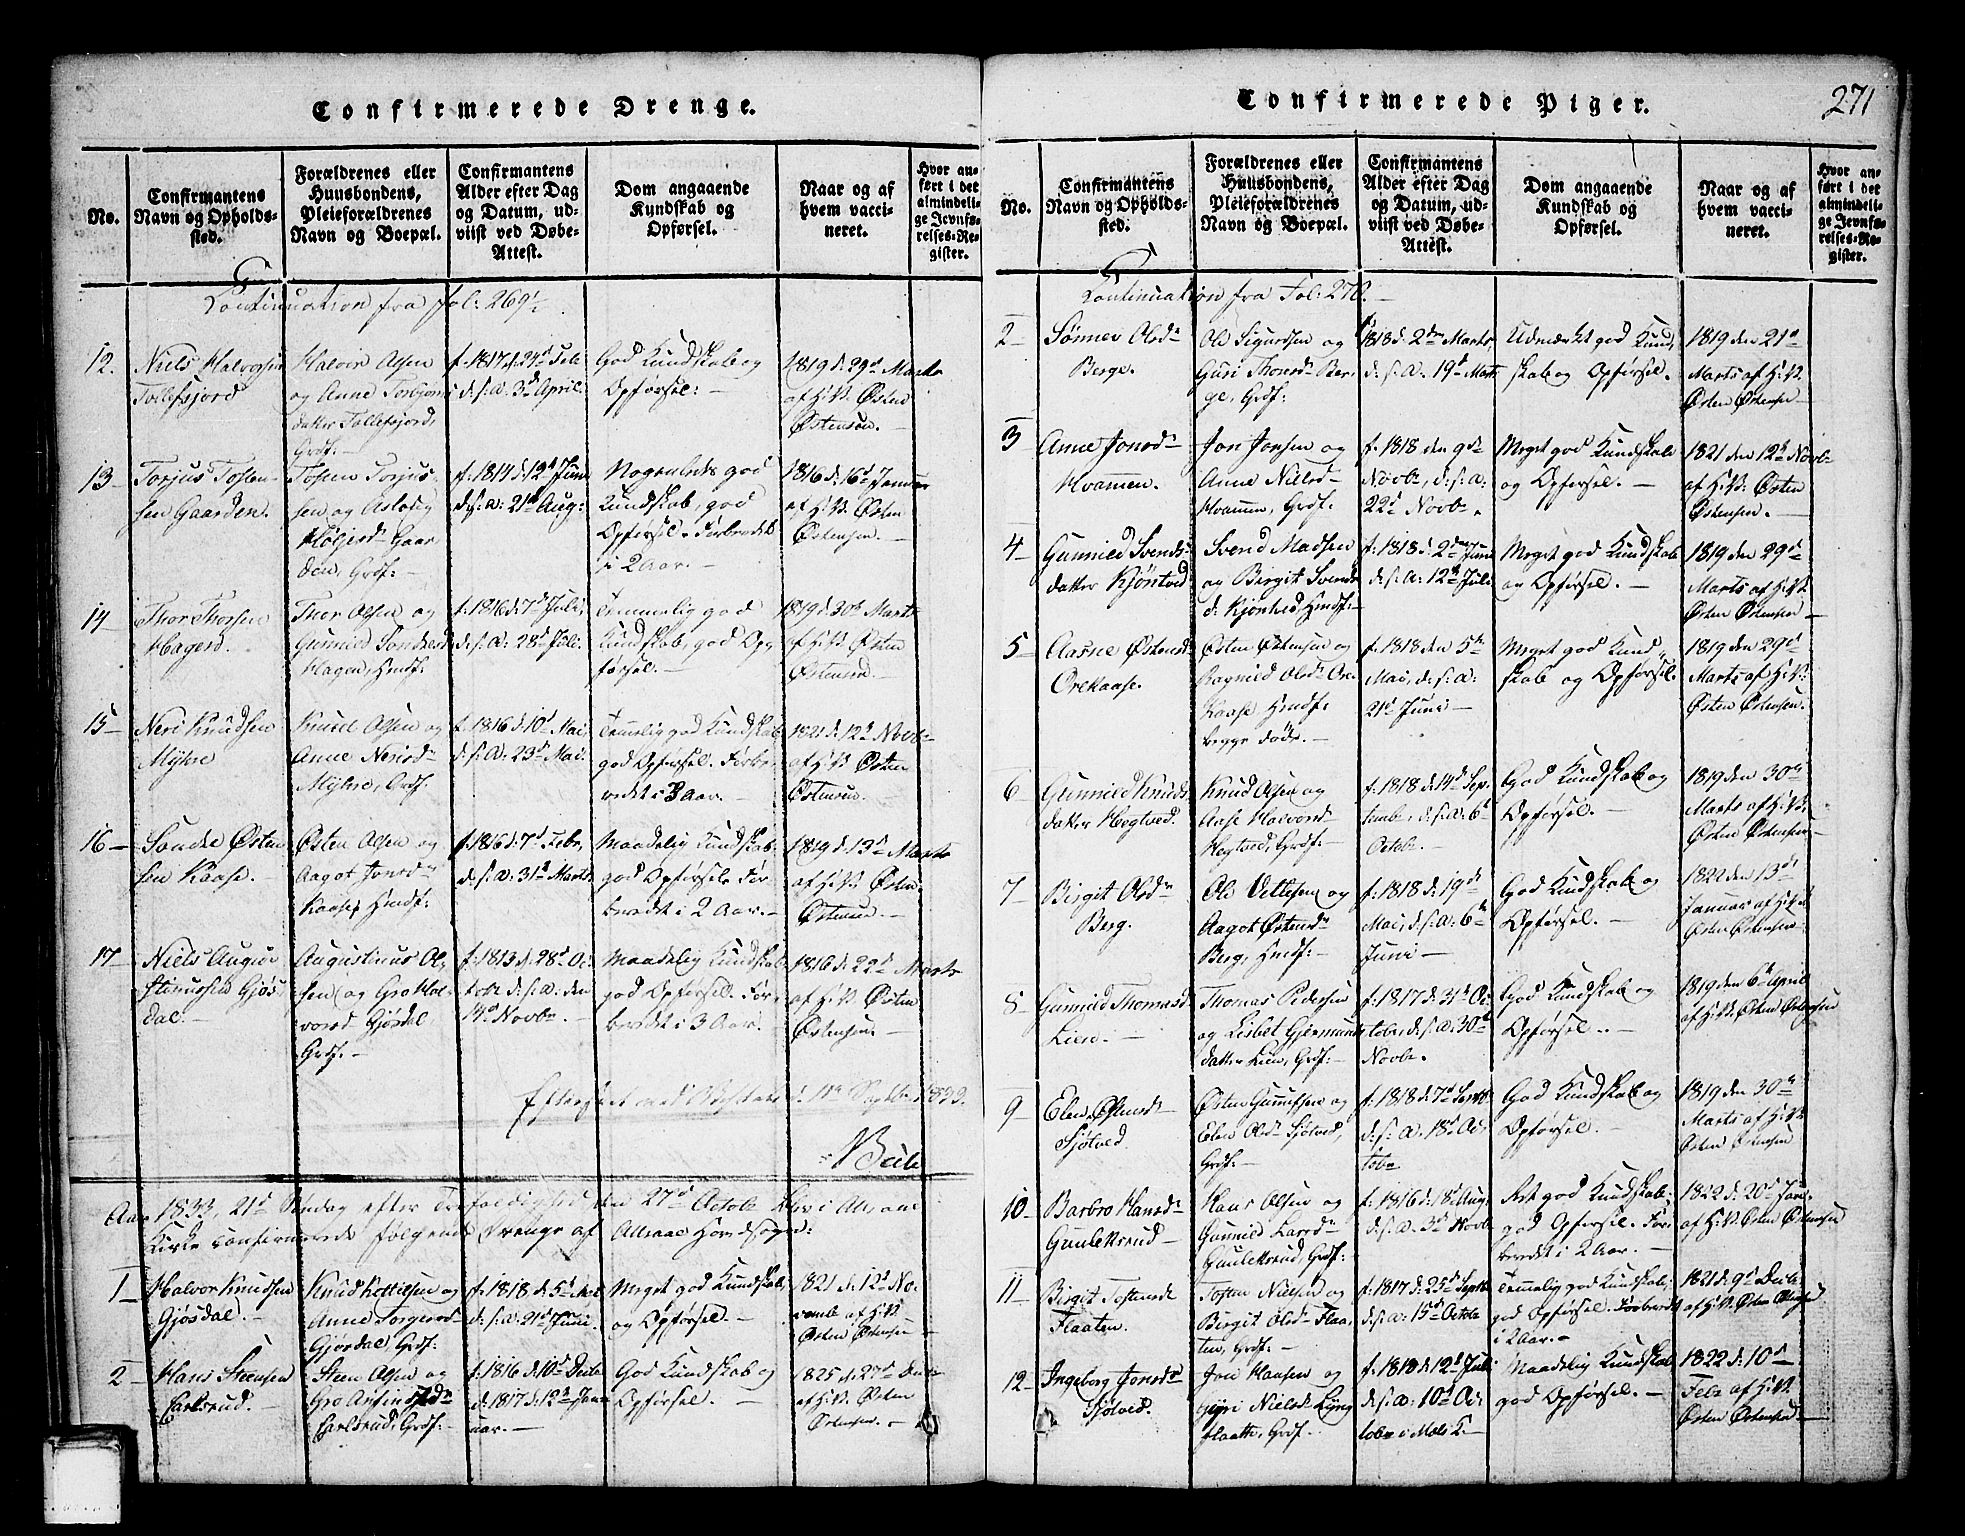 Confirmerede Drenge.
No.
Confirmantens
Navn og Opholds-
sted.
Forældrenes eller
Huusbondens,
Pleieforældrenes
Navn og Boepæl.
Confirmantens
Alder efter Dag
og Datum, ud-
viist ved Døbe-
Attest.
Dom angaaende
Kundskab og
Opførsel.
Naar og af
hvem vacci-
neret.
Hvor an-
ført i det
almindeli-
ge Jevnfø-
relses-Re-
gister.
Continuation fra fol: 269.
12.
Niels Halvorsen
Tollefsjord
Halvor Olsen
og Anne Torbjørns
datter Tollefsjord,
Grdf: –
f. 1817 d. 24d Feb
d. s. a. 3d April.
God Kundskab og
Opførsel: –
1819 d. 29d Marts
af H: Østen
Østensen. –
13 –
Torjus Tosten-
sen Gaarden.
Tosten Torjus-
sen og Aslaug
Gaar-
den, Grdf: –
f. 1814 d. 12d Juni
d. s. a. 21d Aug:
Nogenledes god
Kundskab, god
Opførsel. Forberedt
i 2 Aar. –
1816 d. 16d Januar
af H: Østen
Østensen. –
14 –
Thor Thorsen
Hagen.
Thor Olsen og
Gunnild
Hagen, Hmdf:
f. 1816 d. 7d Juli,
d. s. a. 28d Juli.
Temmelig god
Kundskab, god Op-
førsel. –
1819 d. 30d Marts
af H: Østen
Østensen
15 –
Neri Knudsen
Myhre
Knud Olsen og
Anne Nerisdr
Myhre, Grdf.
f. 1816 d. 10d Mai,
d. s. a. 23d Mai.
Temmelig god Kundskab,
god Opførsel. Forbe-
redt i 3 Aar. –
1821 d. 12d Novbr
af H: Østen
Østensen.
16 –
Sondre Østen
sen Kaase. –
Østen Olsen og
Aagot Jonsdr
Kaase, Hmdf:
f. 1816 d. 7d Febr,
d. s. a. 31d Marts
Maadelig Kundskab,
god Opførsel. For-
beredt i 2 Aar. –
1819 d. 13d Marts
af H: Østen
Østensen. –
17 –
Niels Augu-
stinussen Gjøs-
dal. –
Augustinus Ol-
sen og Gro Hal-
vorsd Gjøsdal
Grdf. –
f. 1813 d. 28d Oc-
tobr d. s. a. den
14d Novbr. –
Maadelig Kundskab,
god Opførsel. For-
beredt i 3 Aar. –
1816 d. 22d Marts
af H: Østen
Østensen. –
1833.
Aar 1833, 21d Søndag efter Trefoldighed den 27d Octobr blev i Atraae
Kirke confirmerede følgende Drenge af Atraae Hovedsogn:
1 –
Halvor Knudsen
Gjøsdal. –
Knud Kettilsen og
Anne Torgersd
Gjøsdal, Grdf:
f. 1818 d. 5d
d. s. a. 21d Juni.
Meget god Kundskab
og Opførsel. –
1821 d. 12d No-
vembr af H:
Østen Østensen
2 –
Hans Steensen
Carlsrud. –
Steen Olsen og
Gro
Carlsrud, Grdf:
f. 1816 d. 10d Decbr
d. 1817 d. 12d Jan-
uar. –
God Kundskab og
Opførsel. –
1825 d. 27d
af H: Østen
Østensen. –
Confirmerede Piger.
271
No.
Confirmantens
Navn og Opholds-
sted.
Forældrenes eller
Huusbondens,
Pleieforældrenes
Navn og Boepæl.
Confirmantens
Alder efter Dag
og Datum, ud-
viist ved Døbe-
Attest.
Dom angaaende
Kundskab og
Opførsel.
Naar og af
hvem vacci-
neret.
Hvor an-
ført i det
almindeli-
ge Jevnfø-
relses-Re-
gister.
Continuation fra Fol: 270. –
2 –
Sønnev Olsdr
Berge.
Ole Sigurdsen og
Guri Thorsdr Ber-
ge, Grdf:
f. 1818 d. 2den Marts,
d. s. a. 19d Marts
Udmerket god Kund-
skab og Opførsel.
1819 den 21d
Marts af H:
Østen Østensen –
3
Anne Jonsdr
Hvamen.
Jon Jonsen og
Anne Nilsd
Hvamen, Grdf.
f. 1818 den 9de
Novbr, d. s. a.
22d Novbr.
Meget god Kundskab
og Opførsel. –
1821 den 12d Novbr
af H: Østen
Østensen. –
4 –
Gunnild Svends-
datter Kjøntved
Svend Madsen
og Birgit Svends
d. Kjøntved Hmdf: –
f. 1818 d. 2den Juni
d. s. a. 12d Juli
Meget god Kundskab
og Opførsel. –
1819 den 29d
Marts af H:
Østen Østensen –
5 –
Aasne Østensd:
Orekaase.
Østen Østensen og
Ragnild Olsdr Ore-
kaase Hmdf.
begge døde. –
f. 1818 den 5te
Mai, d. s. a.
21d Juni –
Meget god Kund-
skab og Opførsel.
1819 den 29d
Marts af H:
Østen Østensen.
6 –
Gunnild Knuds-
datter Hegtved.
Knud Olsen og
Aase Halvord
Hegtved, Grdf. –
f. 1818 d. 14d Sep-
tembr, d. s. a. 6d
Octobr.
God Kundskab og
Opførsel. –
1819 den 30te
Marts af H:
Østen Østensen –
7 –
Birgit Olsdr
Berg.
Ole Vetlesen og
Aagot Østensdr
Berg, Hmdf: –
f. 1818 d. 19de
Mai, d. s. a. 6te
Juni –
God Kundskab og
Opførsel. –
1822 den 13de
Januar af H:
Østen Østensen –
8 –
Gunnild Thomasd
Lien. –
Thomas Pedersen
og Lisbet Gjermunds
datter Lien, Grdf: –
f. 1817 d. 31d Oc-
tobr, d. s. a. 30d
Novbr.
God Kundskab og
Opførsel. –
1819 den 6te April
af H: Østen Østensen
9 –
Elen Østensd
Sjøtved.
Østen Gunulfsen og
Elen Olsd Sjøtved,
Grdf: –
f. 1818 d. 7d Septbr
d. s. a. 18d Oc-
tobr
God Kundskab og
Opførsel. –
1819 den 30te
Marts af H:
Østen Østensen
10 –
Barbro Hansdr
Gauleksrud –
Hans Olsen og
Gunnild Larsdr
Gauleksrud, Grdf:
f. 1816 d. 18d Aug,
d. s. a. 3d Novbr
Ret god Kundskab,
god Opførsel. For-
beredt i 2 Aar. –
1822 d. 20d Jan-
af H: Østen Østensen
11 –
Birgit Tostensdr
Flaaten.
Tosten Nielsen og
Birgit Olsdr Flaa-
ten, Grdf: –
f. 1817 d. 25d Septbr
d. s. a. 15d Octobr
Temmelig god Kundskab,
god Opførsel. Forberedt
i 2 Aar. –
1821 d. 9d Decbr
af H: Østen Østensen
12 –
Ingeborg Jonsdr
Sjøtved.
Jon Hansen og
Nielsd
Grdf.
f. 1818 d. 12d Juli
d. s. a. 10d Oc-
tobr i Mæls K. –
Maadelig Kundskab
god Opførsel. –
1822 d. 10d
Febr af H:
Østen Østensen –